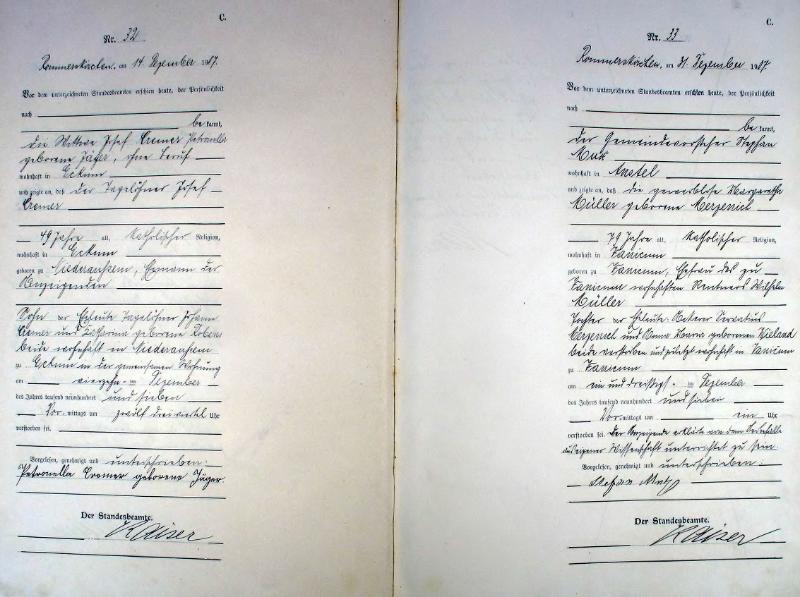 C.
Nr. 32
Rommerskirchen, am 14 Dezember 1907.
Vor dem unterzeichneten Standesbeamten erschien heute, der Persönlichkeit
nach
be kannt,
die Witwe Josef Cremer Petronella
geborene Jäger, ohne Beruf
wohnhaft in Eckum
und zeigte an, daß der Tagelöhner Josef
Cremer
49 Jahre alt, katholischer Religion,
wohnhaft in Eckum
geboren zu Niederaußem, Ehemann der
Anzeigenden
Sohn der Eheleute Tagelöhner Johann
Cremer und Katharina geborene
beide wohnhaft in Niederaußem
zu Eckum in der gemeinsamen Wohnung
am vierzehn ten Dezember
des Jahres tausend neunhundert und sieben
Vor mittags um zwölf dreiviertel Uhr
verstorben sei.
Vorgelesen, genehmigt und unterschrieben:
Petronella Cremer geborene Jäger
Der Standesbeamte.
Kaiser
C.
Nr. 33
Rommerskirchen, am 31. Dezember 1907
Vor dem unterzeichneten Standesbeamten erschien heute, der Persönlichkeit
nach
be kannt,
der Gemeindevorsteher Stephan
wohnhaft in Anstel
und zeigte an, daß die gewerblose Margaretha
Müller geborene Merzenich
79 Jahre alt, katholischer Religion,
wohnhaft in
geboren zu Ehefrau des zu
wohnhaften Rentners Wilhelm
Müller
Tochter der Eheleute Servatius
Merzenich und Anna Maria geborenen Wieland
beide verstorben und zuletzt wohnhaft in
zu
am ein und dreißigst ten Dezember
des Jahres tausend neunhundert und sieben
Vor mittags um ein Uhr
verstorben sei. Der Anzeigende erklärte von dem Sterbefalle
aus eigener Wissenschaft unterrichtet zu sein
Vorgelesen, genehmigt und unterschrieben:
Der Standesbeamte.
Kaiser